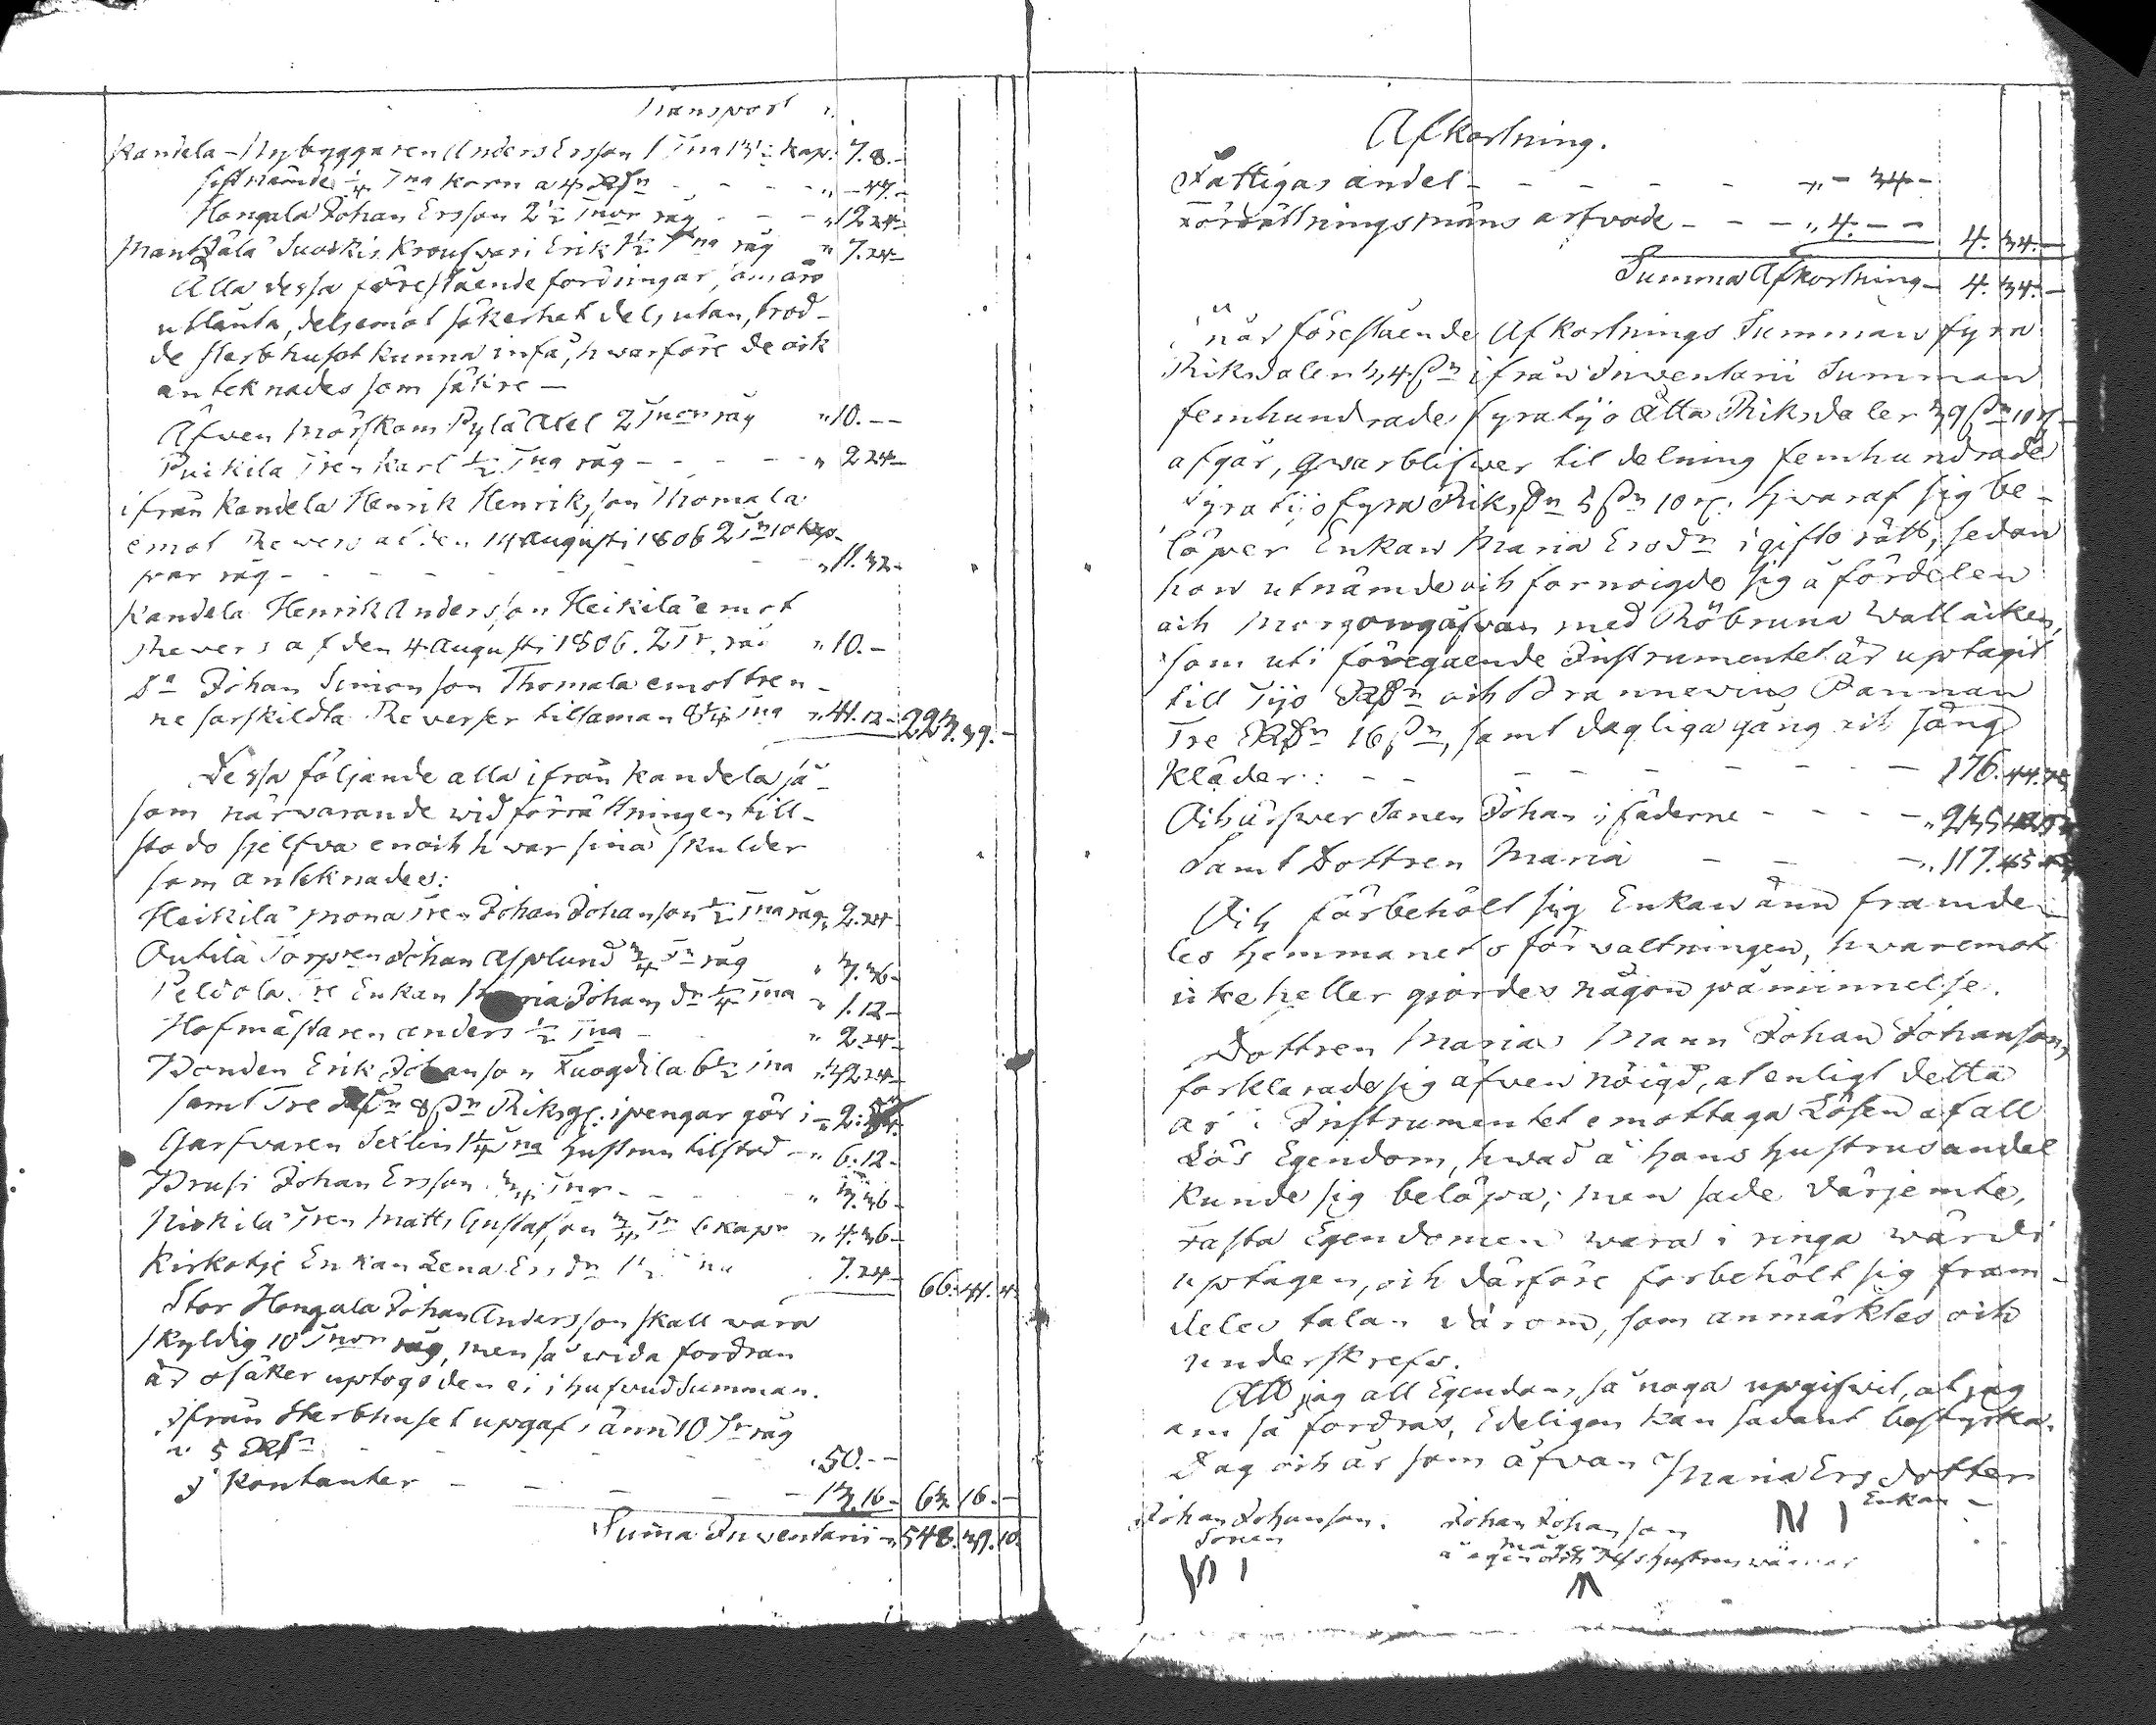 Transport "
Kandela Nybyggaren Anders Ersson 1 Tna 13½ kap: 7. 8.-
sistnämde ¼ Tna korn a 4 Rdr - - - " - 44.-
Hongala Johan Ersson 2½ Tnor råg - - - " 12 24-
Mantzälä Suoskis Kroufvari Erik 1½ Tna råg " 7. 24-
Alla dessa förestående fordringar, som äro
utlänta, dels emot säkerhet dels utan, trod-
de sterbhuset kunna infå, hwarföre de ock
antecknades som säkre -
Äfwen Mörskom Pylä Axel 2 Tnor råg " 10. - -
Puikila Tren Karl ½ Tna råg - - - - " 2 24-
ifrån Kandela Henrik Henriksson Thomala
emot Revers af den 14 Augusti 1806 2 Tn 10 kap-
par råg - - - - - - - " 11. 32-
Kandela Henrik Andersson Heikilä emot
Revers af den 4 Augusti 1806. 2 Tr. råg " 10. -
Do Johan Simonsson Thomala emot tren-
ne särskildta Reverser tilsaman 8¼ Tna " 41. 12- 223. 39. -
Dessa följande alla ifrån Kandela så-
som närwarande wid förrättningen till-
stodo sjelfva en och hwar sina skulder
som antecknades:
Heikilä Mona Tren Johan Johansson ½ Tna råg " 2. 24-
Antila Torpren Johan Asplund ¾ Tn råg " 3. 36-
Peldola Tre Enkan Maria Johans dr ¼ Tna " 1. 12-
Hofmästaren Anders ½ Tna - " 2. 24-
Bonden Erik Johansson Kuogdila 6½ Tna " 32 24-
samt Tre Rdr 8 sn Riksg. i pengar gör i - " 2.
Garfvaren Sexlin 1¼ Tna hustrun tilstod - " 6. 12-
Prusi Johan Ersson ¾ Tnr - - - " 3. 36-
Niskila Tren Matts Gustafsson ¾ Tn 6 kapr " 4. 36-
Kirkotje Enkan Lena Ersdr 1½ Tna 7. 24- 66. 41. 4.
Stor Hongala Johan Andersson skall vara
skyldig 10 Tnor råg, men så wida fordran
är osäker uptogs den ei i hufvud Summan.
Ifrån Sterbhuset upgafs änn 10 Tr råg
a 5 Rdr - - - - - - 50. - -
I Kontanter - - - - - 13. 16- 63. 16. -
Suma Inventarii " 548. 39. 10.
Afkortning.
Fattigas andel - - - - - " - 34 -
Förrättningsmäns arfvode - - - " 4. - - 4. 34. -
Summa Afkortning - 4. 34. -
när förestående Afkortnings Summan fyra
Riksdaler 34 sn ifrån Inventarii Summan
femhundrade fyratijo åtta Riksdaler 39 sn 10 r
afgår, qwarblifwer til delning femhundrade
fyratijo fyra Riksdr 5 sn 10 r. hwaraf sig be-
löper Enkan Maria Ersdr i gifto rätt, sedan
hon utnämde och förnöigde sig å fördelen
och Morgongåfvan med Röbruna Wallacken,
som uti föregaende Instrumentet är uptagit
till Tijo Rdr och Brännevins Pannan
Tre Rdr 16 sn, samt dagliga gång och säng
kläder: - - - - - - - 176. 44.
Och ärfwer Sonen Johan i fäderne - - - " 235
Samt Dottren Maria - - - " 117. 45
Och förbehölt sig Enkan änn framde-
les hemmanets förvaltningen, hwaremot
icke heller giordes någon påminnelse.
Dottren Marias Mann Johan Johansson,
förklarade sig äfven nöigd, at enligt detta
Instrumentet emottaga Lösen af all
Lös Egendom, hwad å hans hustrus andel
kunde sig belöpa; men sade därjemte,
Fasta Egendomen wara i ringa wärde
uptagen, och därföre förbehölt sig fram-
deles talan därom, som anmärktes och
underskrefs.
Att jag all Egendom, så noga upgifwit, at jag
om så fordras, Edeligen kan sådant bestyrka.
Dag och år som åfvan Maria Ersdotter
Enkan -
Johan Johansson. Johan Johansson
Sonen mågen
å egen och dess hustrus wägnar